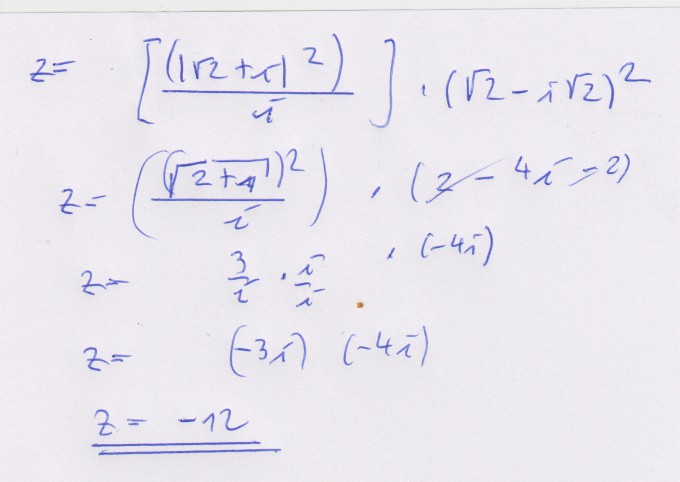 z = [(|√2 + i|²)/i] · (√2 − i√2)²
z = ((√2+1)²/i) · (2 − 4i − 2)
z = 3/i · i/i · (−4i)
z = (−3i) (−4i)
z = −12